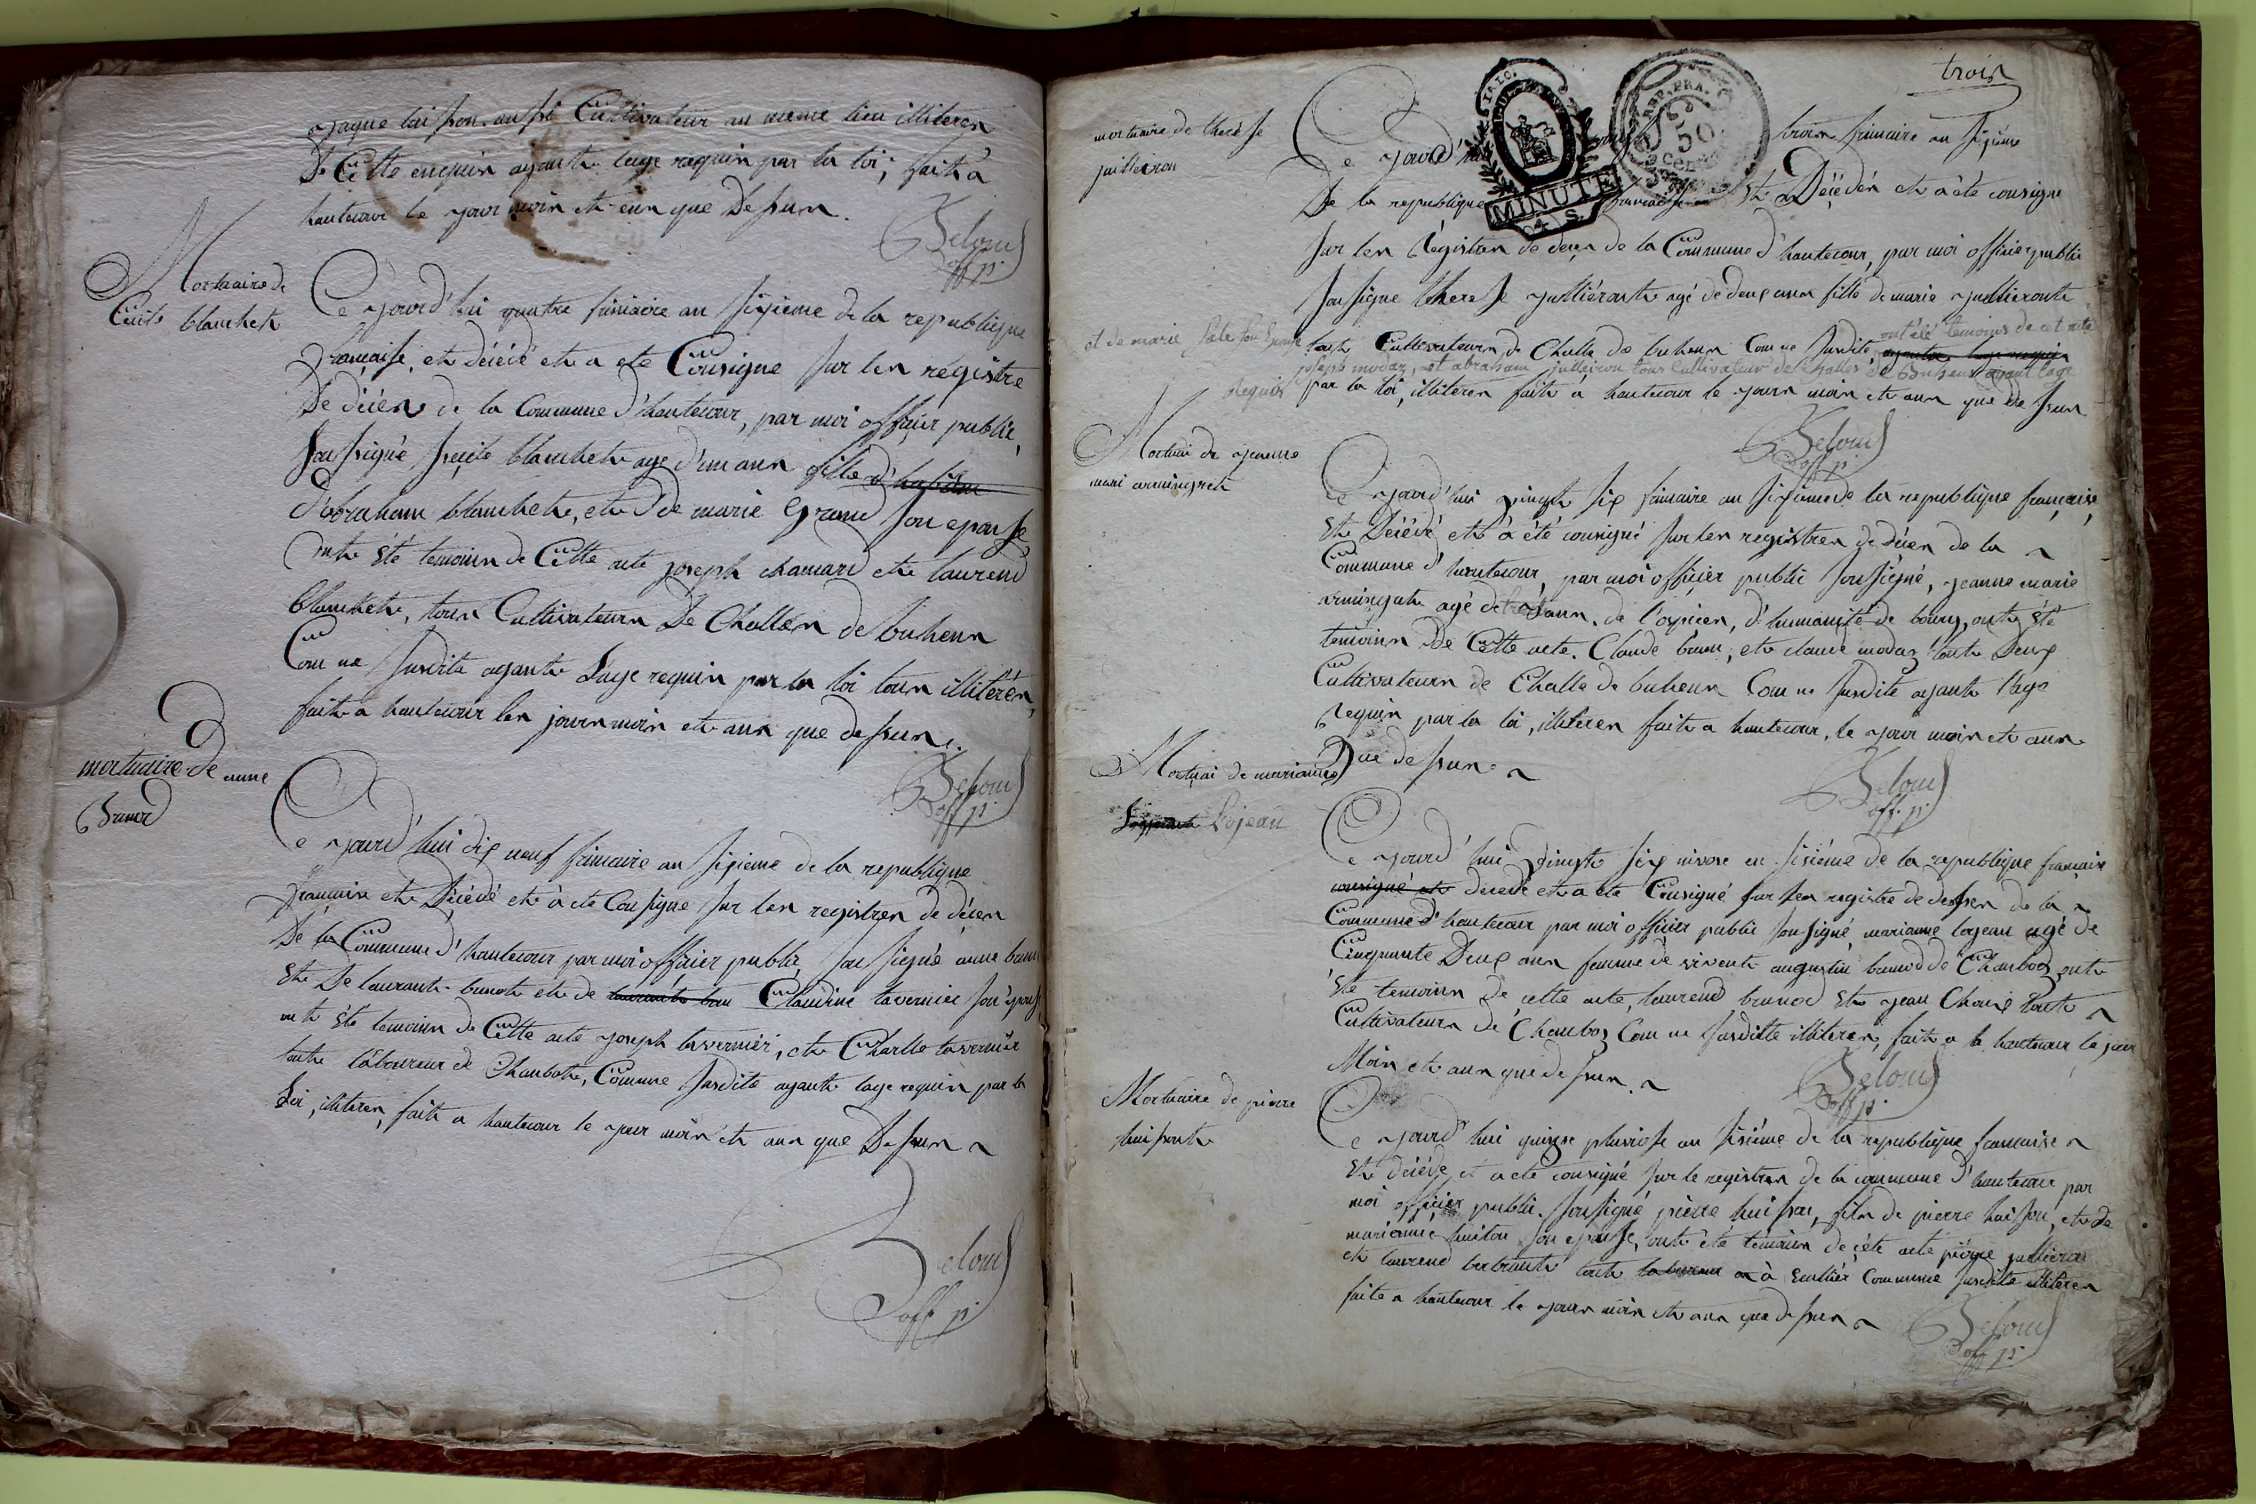 jaque buisson aussi Cultivateur au meme lieu illiteres
de Cette enquin ayante lage requin par la loi; fait a
hautecour le jour moin et eun que Dessun.
Belouf
off. p.
Mortuaire de
Cécile blanchet
Ce jourd'hui quatre frimaire an sixieme de la republique
française, et décédé et a eté Consigné sur les registre
De décén de la Commune d'hautecour, par moi officier public,
soussigné, sécile blanchete age d'un ann fille
d'abraham blanchete, et de marie Grand son epouse
onte été temoin de Cette acte joseph chanard et laurend
blanchete, tous Cultivateurs De Challes de buhenn
Com ne susdite ayante Lage requin par la loi toun illiteren,
fait a hautecour len journ moin et ann que dessun.
Belouf
off. p.
mortuaire de anne
Brunod
Ce jourd'hui dix neuf frimaire an sixieme de la republique
française et Décédé et à eté Consigne sur les registren de décen
De la Commune d'hautecour par moi officier public, sousigné anne
Ste De laurante brunod et de Claudine tavernier son épouse
onte été temoin de Cette acte joseph tavernier, et Charlle tavernier
toute laboureur de Chambod, Comune susdite ayante lage requin par la
Loi, illiteren, fait a hautecour le jour moin et ann que Dessun
Belouf
off. p.
troin
mortuaire de therése
juillieron
MINUTE
Ce jourd'hui troin frimaire an sixieme
De la republique française Ste Décédén et a été consigne
sur len Régistren de décen de la Commune d'hautecour, par moi officier public
sousigne therese jullieronte agé de deux ann fille de marie jullieronte
et de marie
toute Cultivateurn de Challe de buhenn Com ne susdite, ont été temoins de cet acte
joseph modaz, et abraham juilleiron tous Cultivateur de Challes de Buhenn ayant lage
Requis par la loi, illiteren faite a hautecour le journ moin et ann que de ssun
Belouf
off. p.
Mortuai de jeanne
mari armingeth
Ce jourd'hui vingte six frimaire an sixieme de la republique française,
Ste Décédé et a été consigné sur len registren de décen de la
Commune d'hautecour, par moi officier public sousigné, jeanne marie
armingete agé de ann, de l'ospicen, d'humanité de bourg, onte été
temoinn de Cette acte. Claude et claude modaz toute Deux
Cultivateurn de Challe de buhenn Com ne susdite ayante l'age
Requin par la loi, illiteren faite a hautecour, le jour moin et ann
Que dessun.
Belouf
off. p.
Mortuai de marianne
Lojean
Ce jourd'hui vingte six nivose en sixiéme de la republique française
consigné et décédé et a eté Consigné sur len registre de dessen de la
Commune d'hautecour par moi officier public sousigné marianne lojean agé de
Cinquante Deux ann femme de vivente augustin brunod de Chanbod, onte
été temoinn de cette acte, laurend brunod Ste jean toute
Cultivateurn de Chanbod Com ne susditte illiteren, faite a hautecour le jour
Moin et ann que dessun.
Belouf
off. p.
Mortuaire de pierre
buisson
Ce jourd'hui quinze pluviose an sixiéme de la republique française
Ste décédé et a eté consigné sur le registren de la commune d'hautecour par
moi officier public. sousigné pierre buisson, filn de pierre buisson, et de
marianne son epouse, onte été temoin de cete acte jullieron
et laurend toute à Commune susdite illiteren
faite a hautecour le journ moin et ann que dessun
Belouf
off. p.